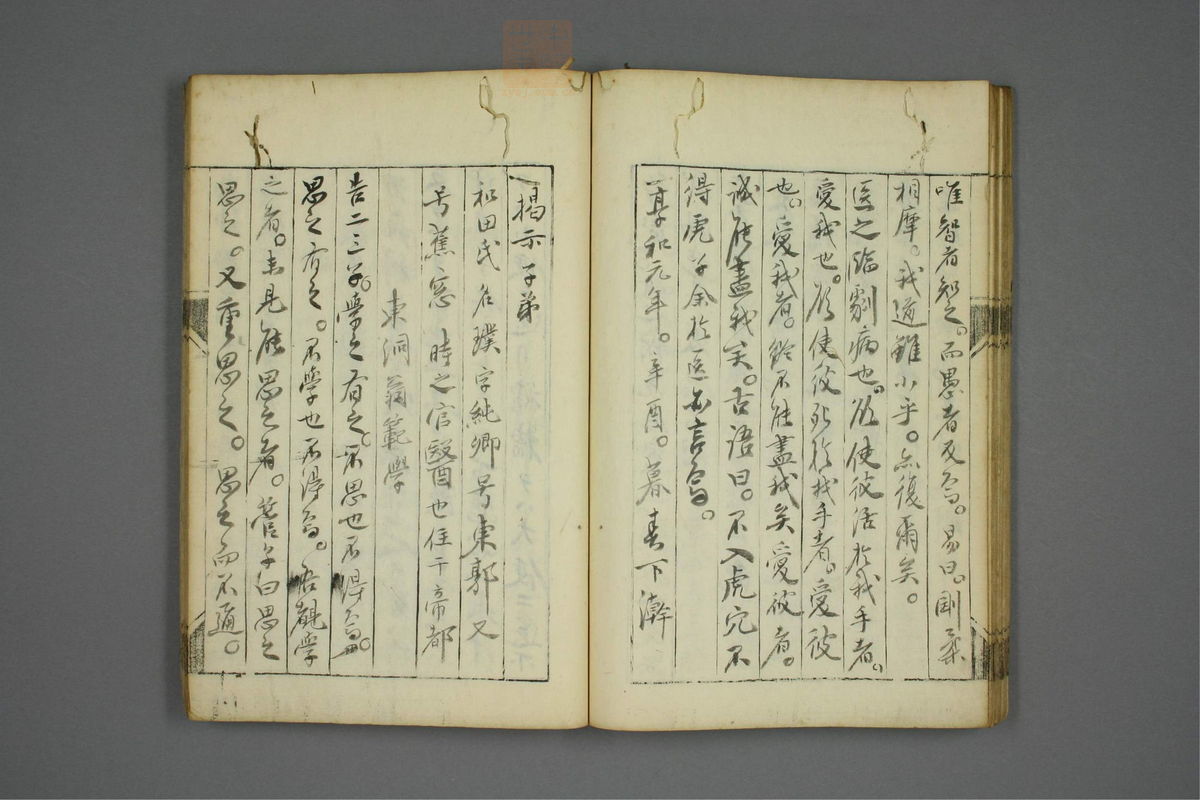 唯智者知之。而愚者反焉。易曰。剛柔
相摩。我道雖小乎。亦復爾矣。
医之臨劇病也。欲使彼活於我手者。
愛我也。欲使彼死於我手者。愛彼
也。愛我者。終不能盡我矣愛彼者。
誠能盡我矣。古语曰。不入虎穴不
得虎子余於医亦言焉。
享和元年。辛酉。暮春下澣
揭示子弟
和田氏名璞字純卿号東郭又
号蕉窓時之官毉也住于帝都
東洞翁範學
告二三子。學之有之。不思也不得焉。
思之有之。不學也不得焉。吾觀学
之者。未見能思之者。管子曰思之
思之。又重思之。思之而不通。